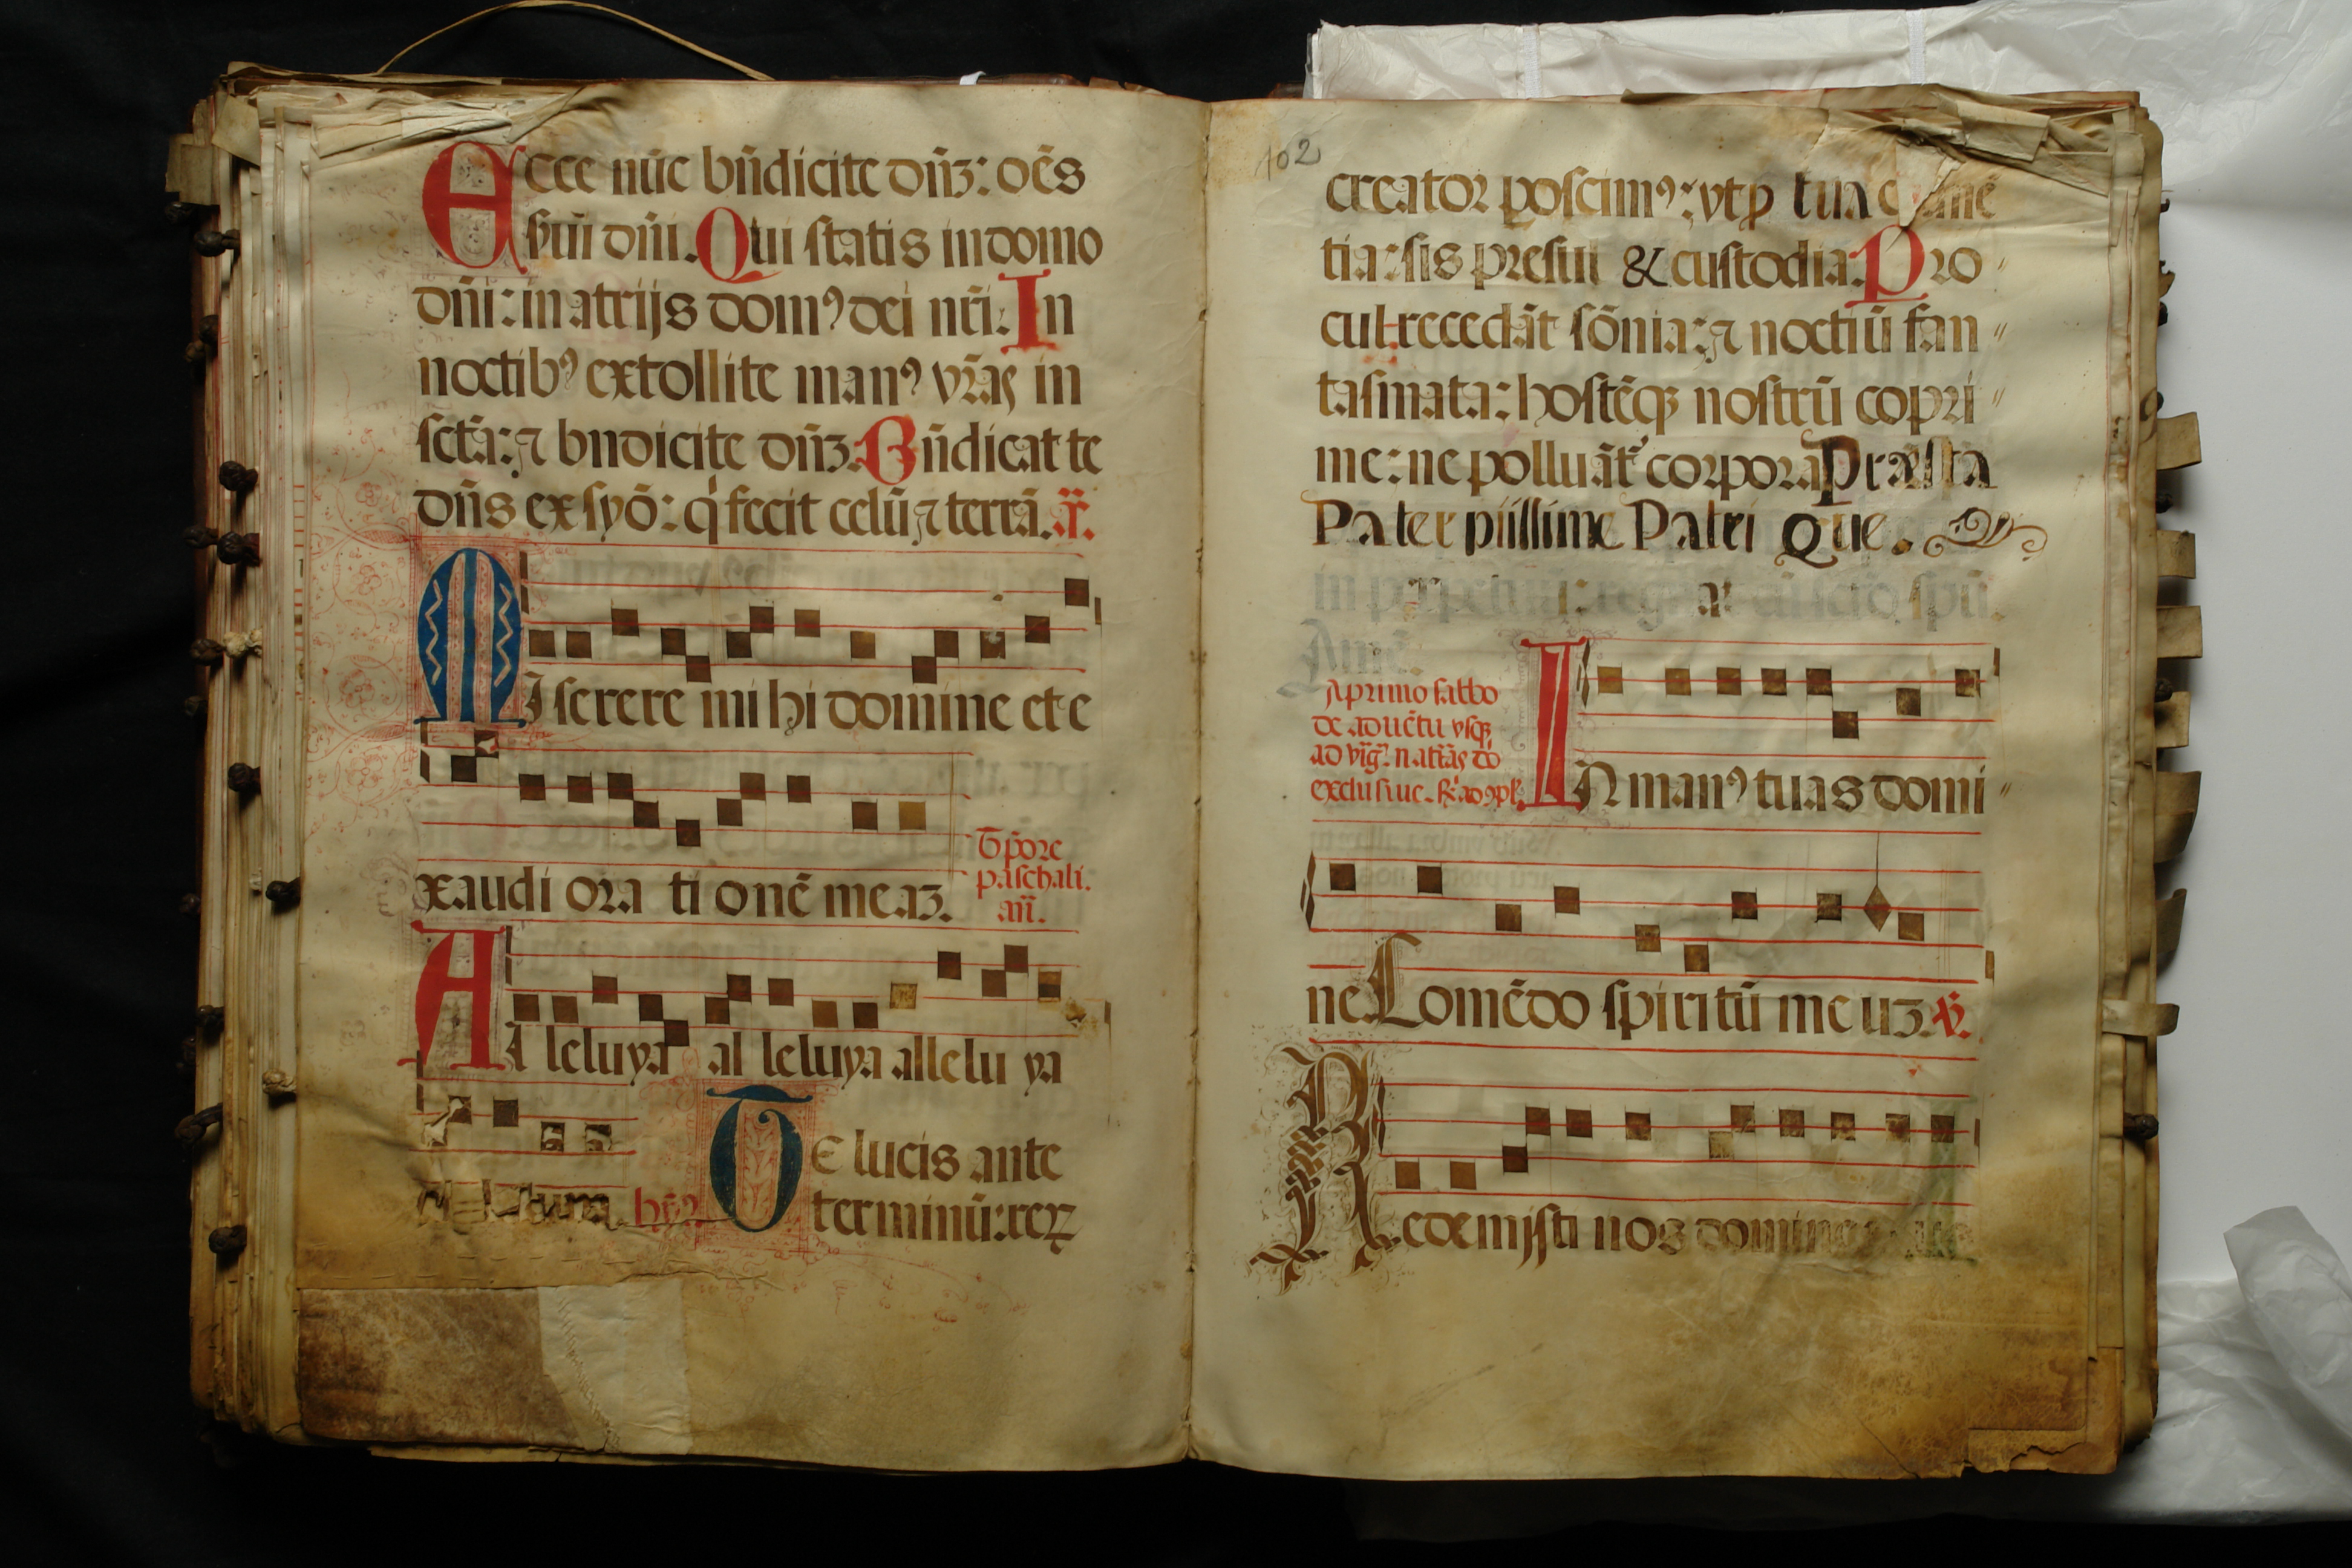 Ecce nūc bn̄dicite dn̄ꝫ: oēs
ẜui dn̄i. Qui statis in domo
dn̄i: in atrijs domꝰ dei nr̄i: In
noctibꝰ extollite manꝰ vr̄as in
sctā: ⁊ bndicite dn̄ꝫ. Bn̄dicat te
dn̄s ex syō: q̇ fecit celū ⁊ terrā. ā.
MIserere mihi domine et e
xaudi ora ti onē meaꝫ.
T̄pore
paschali.
an̄.
AL leluya al leluya allelu ya
hȳꝰ
TE lucis ante
terminū: reꝝ
102
creator poscimꝰ: vt ꝓ tua
tia: sis presul & custodia. Pro
cul recedāt sōnia: ⁊ noctiū fan
tasmata: hostēqꝫ nostrū copri
me: ne polluāt᷑ corpora Præsta
Pater piissime Patri Que.
in perpetuū: regnat cū scto spū.
Amē.
A primo sabbo
de aduētu vsqꝫ
ad vig. natītas do
exclusiue. ꝶ ad ꝯpl.
IN manꝰ tuas domi
ne Comēdo spiritū meuꝫ. ℣.
Redemisti nos domine